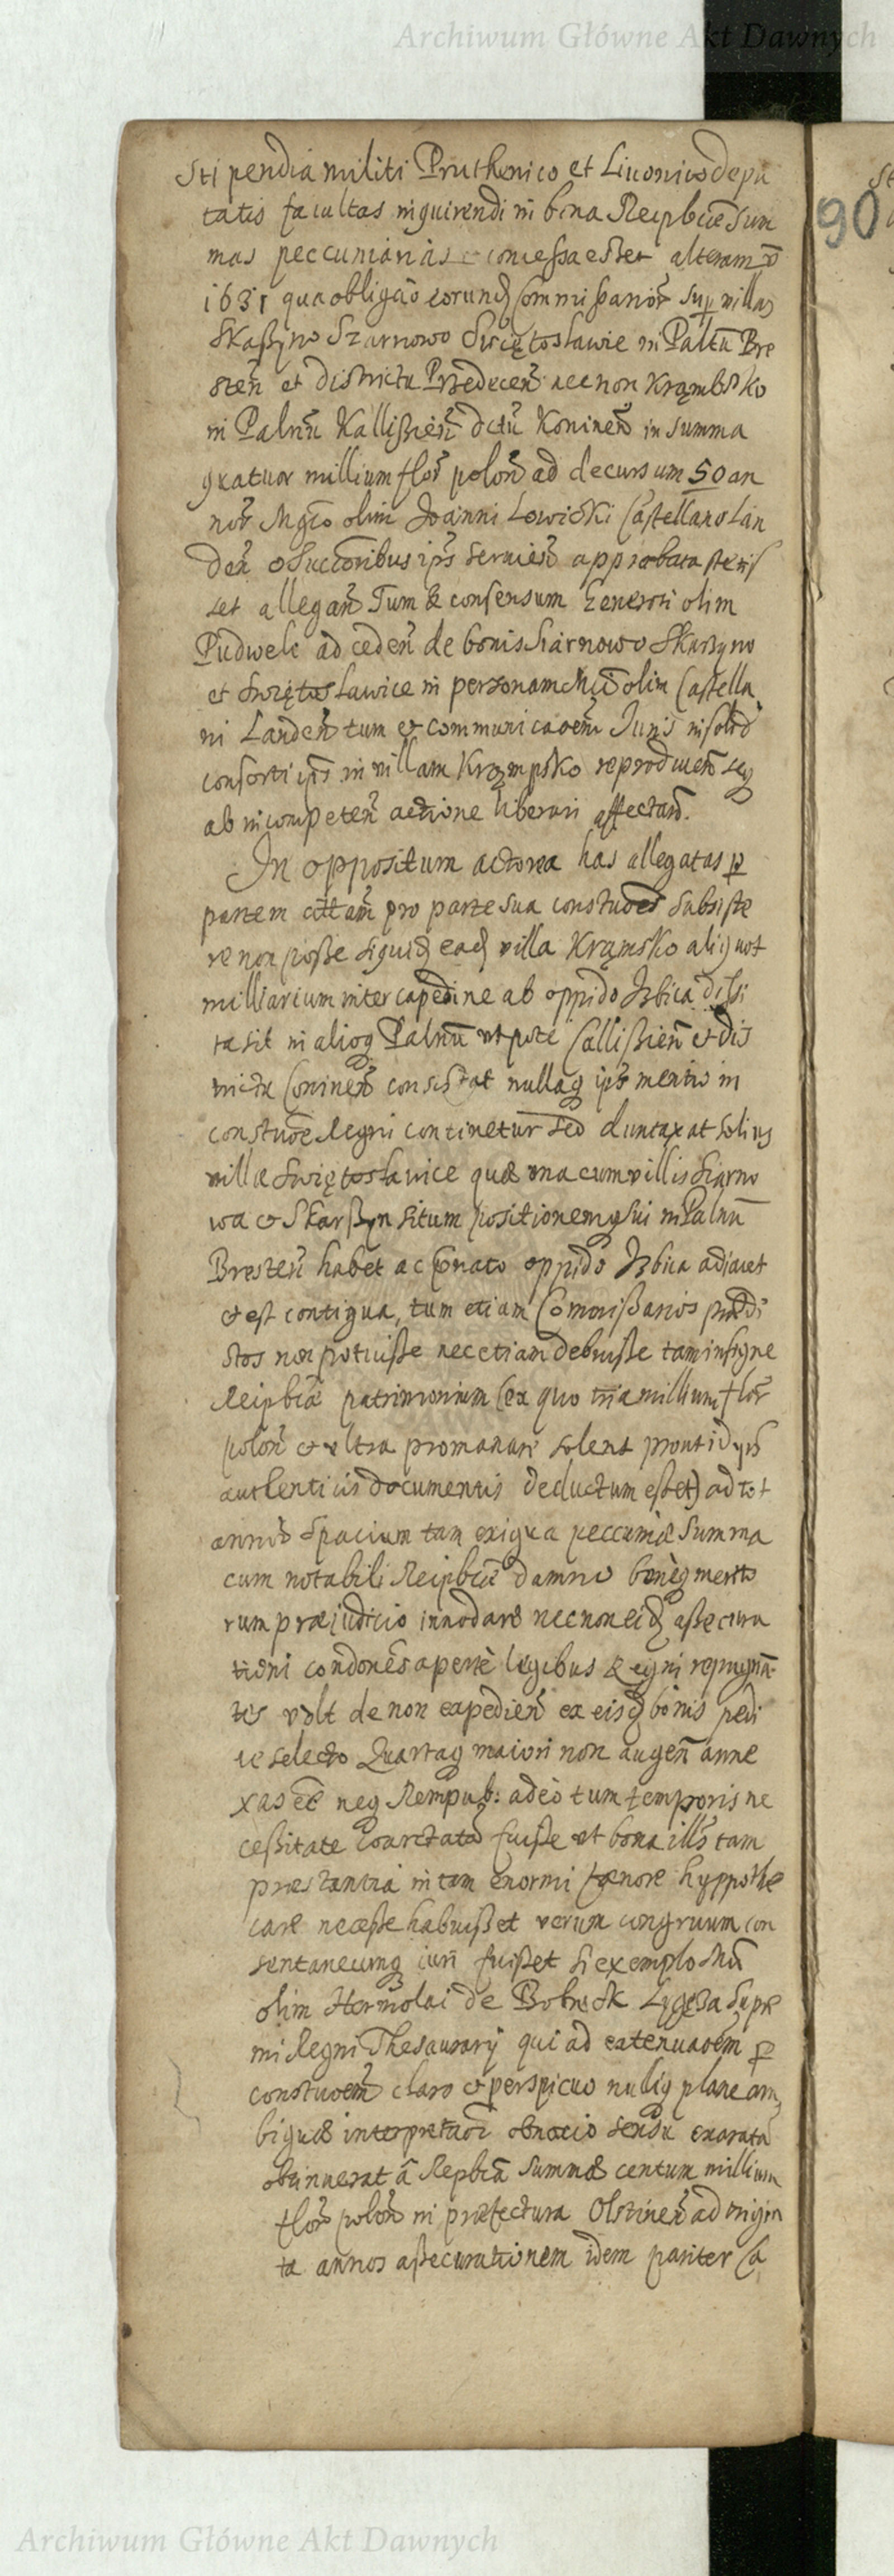 Archiwum Główne Akt Dawnych
Stipendia militi Pruthenico et Liuonico depu
tatis facultas inquirendi in bona Reipbcae Sum
mas peccuniarias concessa esset alteram v
1631 qua obligao eorund Commissarior sup villas
Skaßyno Szarnowo Swiętosławie in Paltu Bre
sten et districtu Przedecen necnon Krąmbsko
in Palnu Kallißien dctu Koninen in summa
quatuor millium flor polon ad decursum 50 an
nor Mgco olim Joanni Lowicki Castellano Lan
den et Succoribus ips servien approbata stetis
set allegan Tum & consensum Generosi olim
Pudwels ad ceden de bonis Siarnowo Skarzyno
et Swiętosławice in personam Mci olim Castella
ni Landen tum et communicaoem Juris in solid
consorti ips in villam Krąmpsko reproducen seq
ab incompeten actione liberari affectan.
In oppositum actorea has allegatas p
partem cittam pro parte sua constuoes subsiste
re non posse siquid ead villa Krąmsko aliquot
milliarium intercapedine ab oppido Izbica dissi
ta sit in alioq Palnu utpote Callißien et dis
trictu Coninen consistat nullaq ips mentio in
constuoe Regni continetur sed duntaxat solius
villae Swiętosławice quae una cum villis Siarno
wo et Skarßyn situm positionemq sui in Palnu
Bresten habet ac pnato oppido Izbica adiacet
et est contigua, tum etiam Commißarios praedi
ctos non potuisse nec etiam debuisse tam insigne
Reipbcae patrimonium (ex quo tria millium flor
polon et ultra promanare solent prout id ips
authenticis documentis deductum esset) ad tot
annor spacium tam exigua peccuniae summa
cum notabili Reipbcae damno beneq merito
rum praejudicio innodare necnon eid assecura
tioni condones aperte legibus Regni repugnan
tes vult de non expedien ex eisd bonis pedi
te selecto Quartaq maiori non augen anne
xas ee neq Rempub: adeo tum temporis ne
cessitate coarctata fuisse ut bona ills tam
praestantia in tam enormi faenore hyppothe
care necesse habuisset verum congruum con
sentaneumq iuri fuisset si exemplo Mci
olim Hermolai de Bobrek Ligęza Supre
mi Regni Thesaurarij qui ad extenuaoem p
constuoem claro et perspicuo nulliq plane am
biguae interpretaoi obnoxio sensu exarata
obtinuerat a Repbca summae centum millium
flor polon in praefectura Olstinen ad trigin
ta annos assecurationem idem pariter Ca
90
Archiwum Główne Akt Dawnych